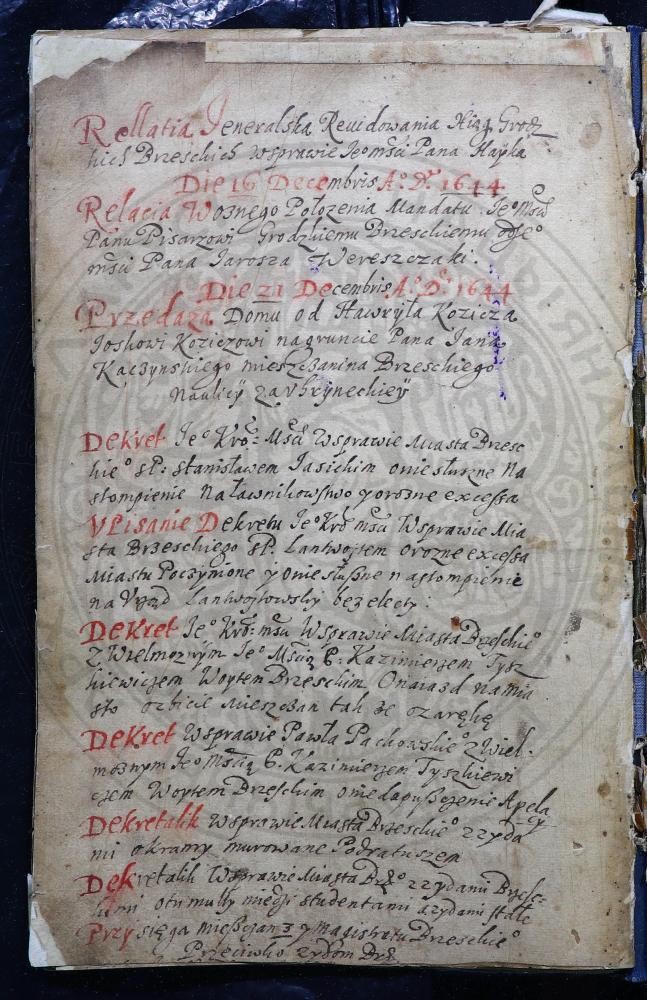 Rellatia Jeneralska Rewidowania Xiąg Grodz
kich Brzeskich wsprawie Jeomści Pana Hayka
Die 16 Decembris Ao Do 1644
Relacia Woznego Położenia Mandatu Jeo Mści
Panu Pisarzowi Grodzkiemu Brzeskiemu od Jeo
mści Pana Jarosza Wereszczaki.
Die 21 Decembris Ao Do 1644
Przedaza Domu od Hawryła Kozicza
Joskowi Koziczowi nagruncie Pana Jana
Kaczynskiego mieszczanina Brzeskiego
Naulicÿ zauhrÿneckieÿ
Dekret Jeo Kró: Mści Wsprawie Miasta Brzesc
kieo sP: Stanisławem Jasickim oniesłuszne Na
stompienie Na Ławnikowstwo y orozne excessa
VPisanie Dekretu Jeo Kró mści Wsprawie Mia
sta Brzeskiego sP. Lantwojtem orozne excessa
Miastu Poczynione ÿ oniesłuszne nastompienie
na Vrzęd Lantwojtowskÿ bez electy:
Dekret Jeo Kró: mści Wsprawie Miasta Brzeskieo
Z Wielmoznÿm Jeo Mścią P. Kazimierzem Tysz
kiewiczem Woytem Brzeskim Onaiazd namia
sto ozbicie Mieszczan tak ze ozarękę
Dekret Wsprawie Pawła Pachowskieo z Wiel.
moznym Jeo Mścią P. Kazimierzem Tyszkiewi
czem Woytem Brzeskim oniedopuszczenie Apela
cÿ
Dekretalik wsprawie Miasta Brzeskieo zzyda
mi okramy murowane Podratuszem
Dekretalik Wsprawie Miasta Brz.o zzydami Brzesc-
kimi otumulty miedzi studentami azydami stałe
Przysięga mieszczan 3 y magistratu Brzeskieo
Przeciwko zydom Brz.